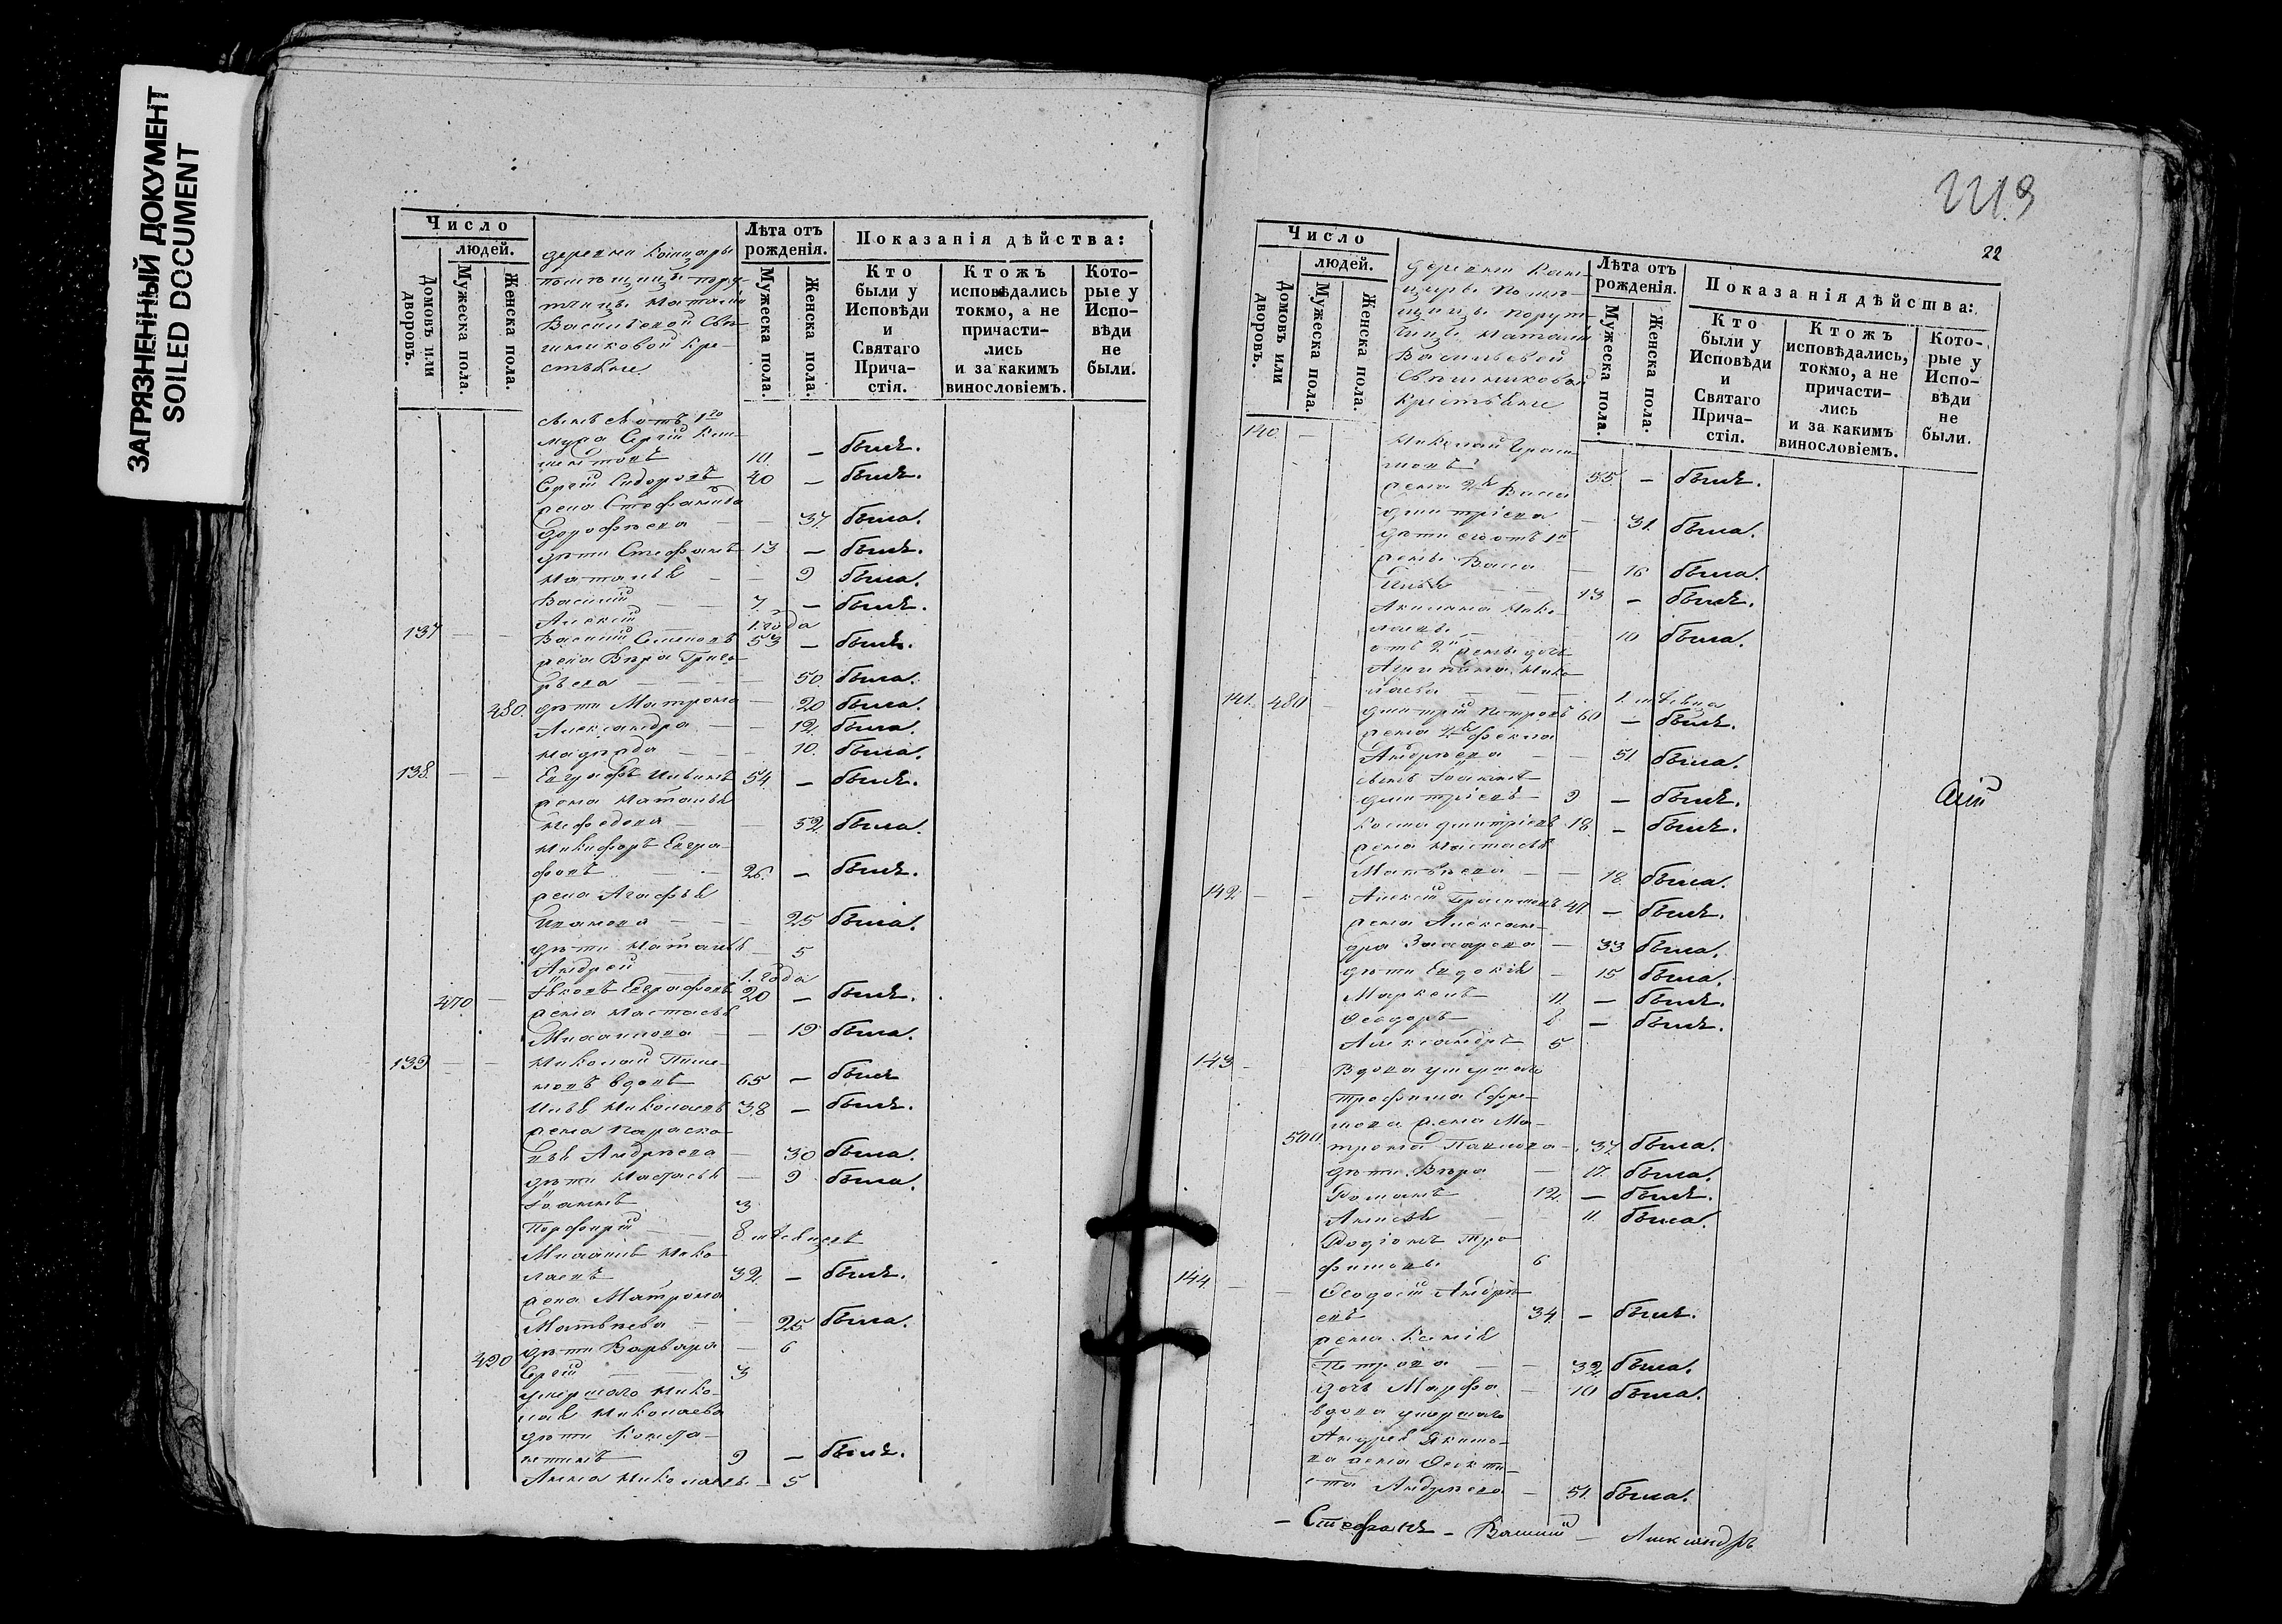 ЗАГРЯЗНЕННЫЙ ДОКУМЕНТ
SOILED DOCUMENT
Число
людей.
Домовъ или дворовъ.
Мужеска пола.
Женска пола.
деревни
Лѣта отъ рожденія.
Мужеска пола.
Женска пола.
Показанія дѣйства:
Кто были у Исповѣди и Святаго Причастія.
Ктожъ исповѣдались токмо, а не причастились и за какимъ винословіемъ.
Которые у Исповѣди не были.
мужа Сергій
10. — былъ.
Сергій Сидоровъ 40 — былъ.
жена Стефанида
Дорофѣева — — 37. была.
дѣти Стефанъ 13 — былъ.
Наталья — — 9 была.
Василій — — 7. — былъ.
Алексѣй — 1. года
137 — — Василій Семеновъ 53 — былъ.
жена Вѣра Григо-
рьева — — — 50. была.
480. дѣти Матрона — 20 была.
Александра — 12. была.
Надежда — — — 10. была.
138. — — Евграфъ Ивановъ 54. — былъ.
жена Наталья
Нефедова — — 52 была.
Никифоръ Евгра-
фовъ — — 26. — былъ.
жена Агафья
Иванова — — — 25 была.
дѣти Наталья — 5
Андрей — 1. года
470 — Яковъ Евграфовъ 20 — былъ.
жена Настасья
Михаилова — — 19 была.
139 — — Николай Пиме-
новъ вдовъ 65 — былъ
Илья Николаевъ 38 — былъ.
жена Параско-
вья Андреева — 30 была.
дѣти Настасья — 9 была.
Іоаннъ 3
Порфирій — 8 мѣсяцевъ
Михаилъ Нико-
лаевъ 32. — былъ.
жена Матрона
Матвѣева — — 25 была.
490 дѣти Варвара — 6
Сергій — — 3
умершаго Нико-
лая Николаева
дѣти Конста-
нтинъ 9 — былъ.
Анна Николаева — 5
22
Число
людей.
Домовъ или дворовъ.
Мужеска пола.
Женска пола.
деревни
Лѣта отъ рожденія.
Мужеска пола.
Женска пола.
Показанія дѣйства:
Кто были у Исповѣди и Святаго Причастія.
Ктожъ исповѣдались, токмо, а не причастились и за какимъ винословіемъ.
Которые у Исповѣди не были.
140. — Николай Гераси-
мовъ 55. — былъ.
жена 2я Васса
Дмитріева — 31. была.
дѣти его отъ 1й
жены Васса — 16 была.
Илья — — 13 — былъ.
Акилина Нико-
лаевы — 10 была.
отъ 2й жены дочь
Агрипина Нико-
лаева — — — 1. мѣсяца
141. 480 — Дмитрій Петровъ 60 — былъ.
жена 2я Фекла
Андреева — — 51 была.
сынъ Іоаннъ
Дмитріевъ 9 — былъ.
Косма Дмитріевъ 18. — былъ.
жена Настасья
Матвѣева — — 18. была.
142 — — Алексѣй Герасимовъ 41. — былъ.
жена Алексан-
дра Захарова — 33 была.
дѣти Евдокія — 15 была.
Маркелъ 11. — былъ.
Ѳеодоръ 8. — былъ.
Александръ 5
143 — Вдова умершаго
Трофима Ефре-
мова жена Ма-
500. трона Павлова — 37. была.
дѣти Вѣра — 17. была.
Романъ 12. — былъ.
Аксинья — 11. была.
Родіонъ Тро-
фимовы 6
144. — — Ѳеодосій Андре-
евъ 34. — былъ.
жена Ксенія
Петрова — — 32 была.
дочь Марфа — 10 была.
вдова умершаго
Андрея Якимо-
ва жена Ѳеокти-
ста Андреева — 51. была.
— Стефанъ — Василій — Александръ